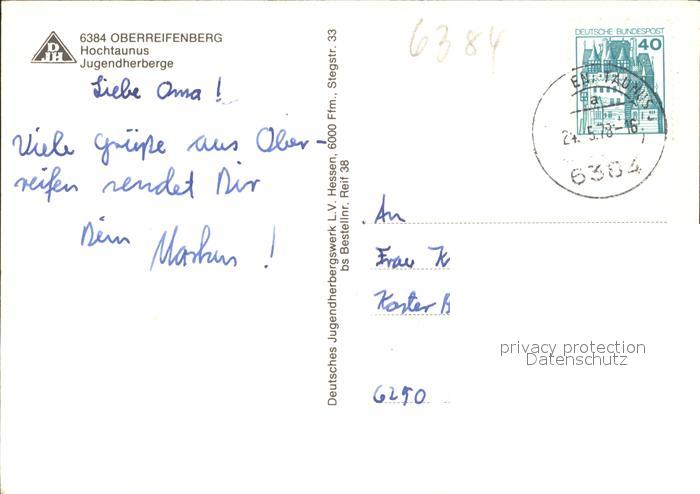 DJH
6384 OBERREIFENBERG
Hochtaunus
Jugendherberge
Liebe Oma!
Viele Grüße aus Ober-
reifen sendet Dir
Dein Markus!
Deutsches Jugendherbergswerk L.V. Hessen, 6000 Ffm., Stegstr. 33
bs Bestellnr. Reif 38
6384
DEUTSCHE BUNDESPOST
40
TAUNUS
a
24.5.78-16
6384
An
Frau K
6250
privacy protection
Datenschutz